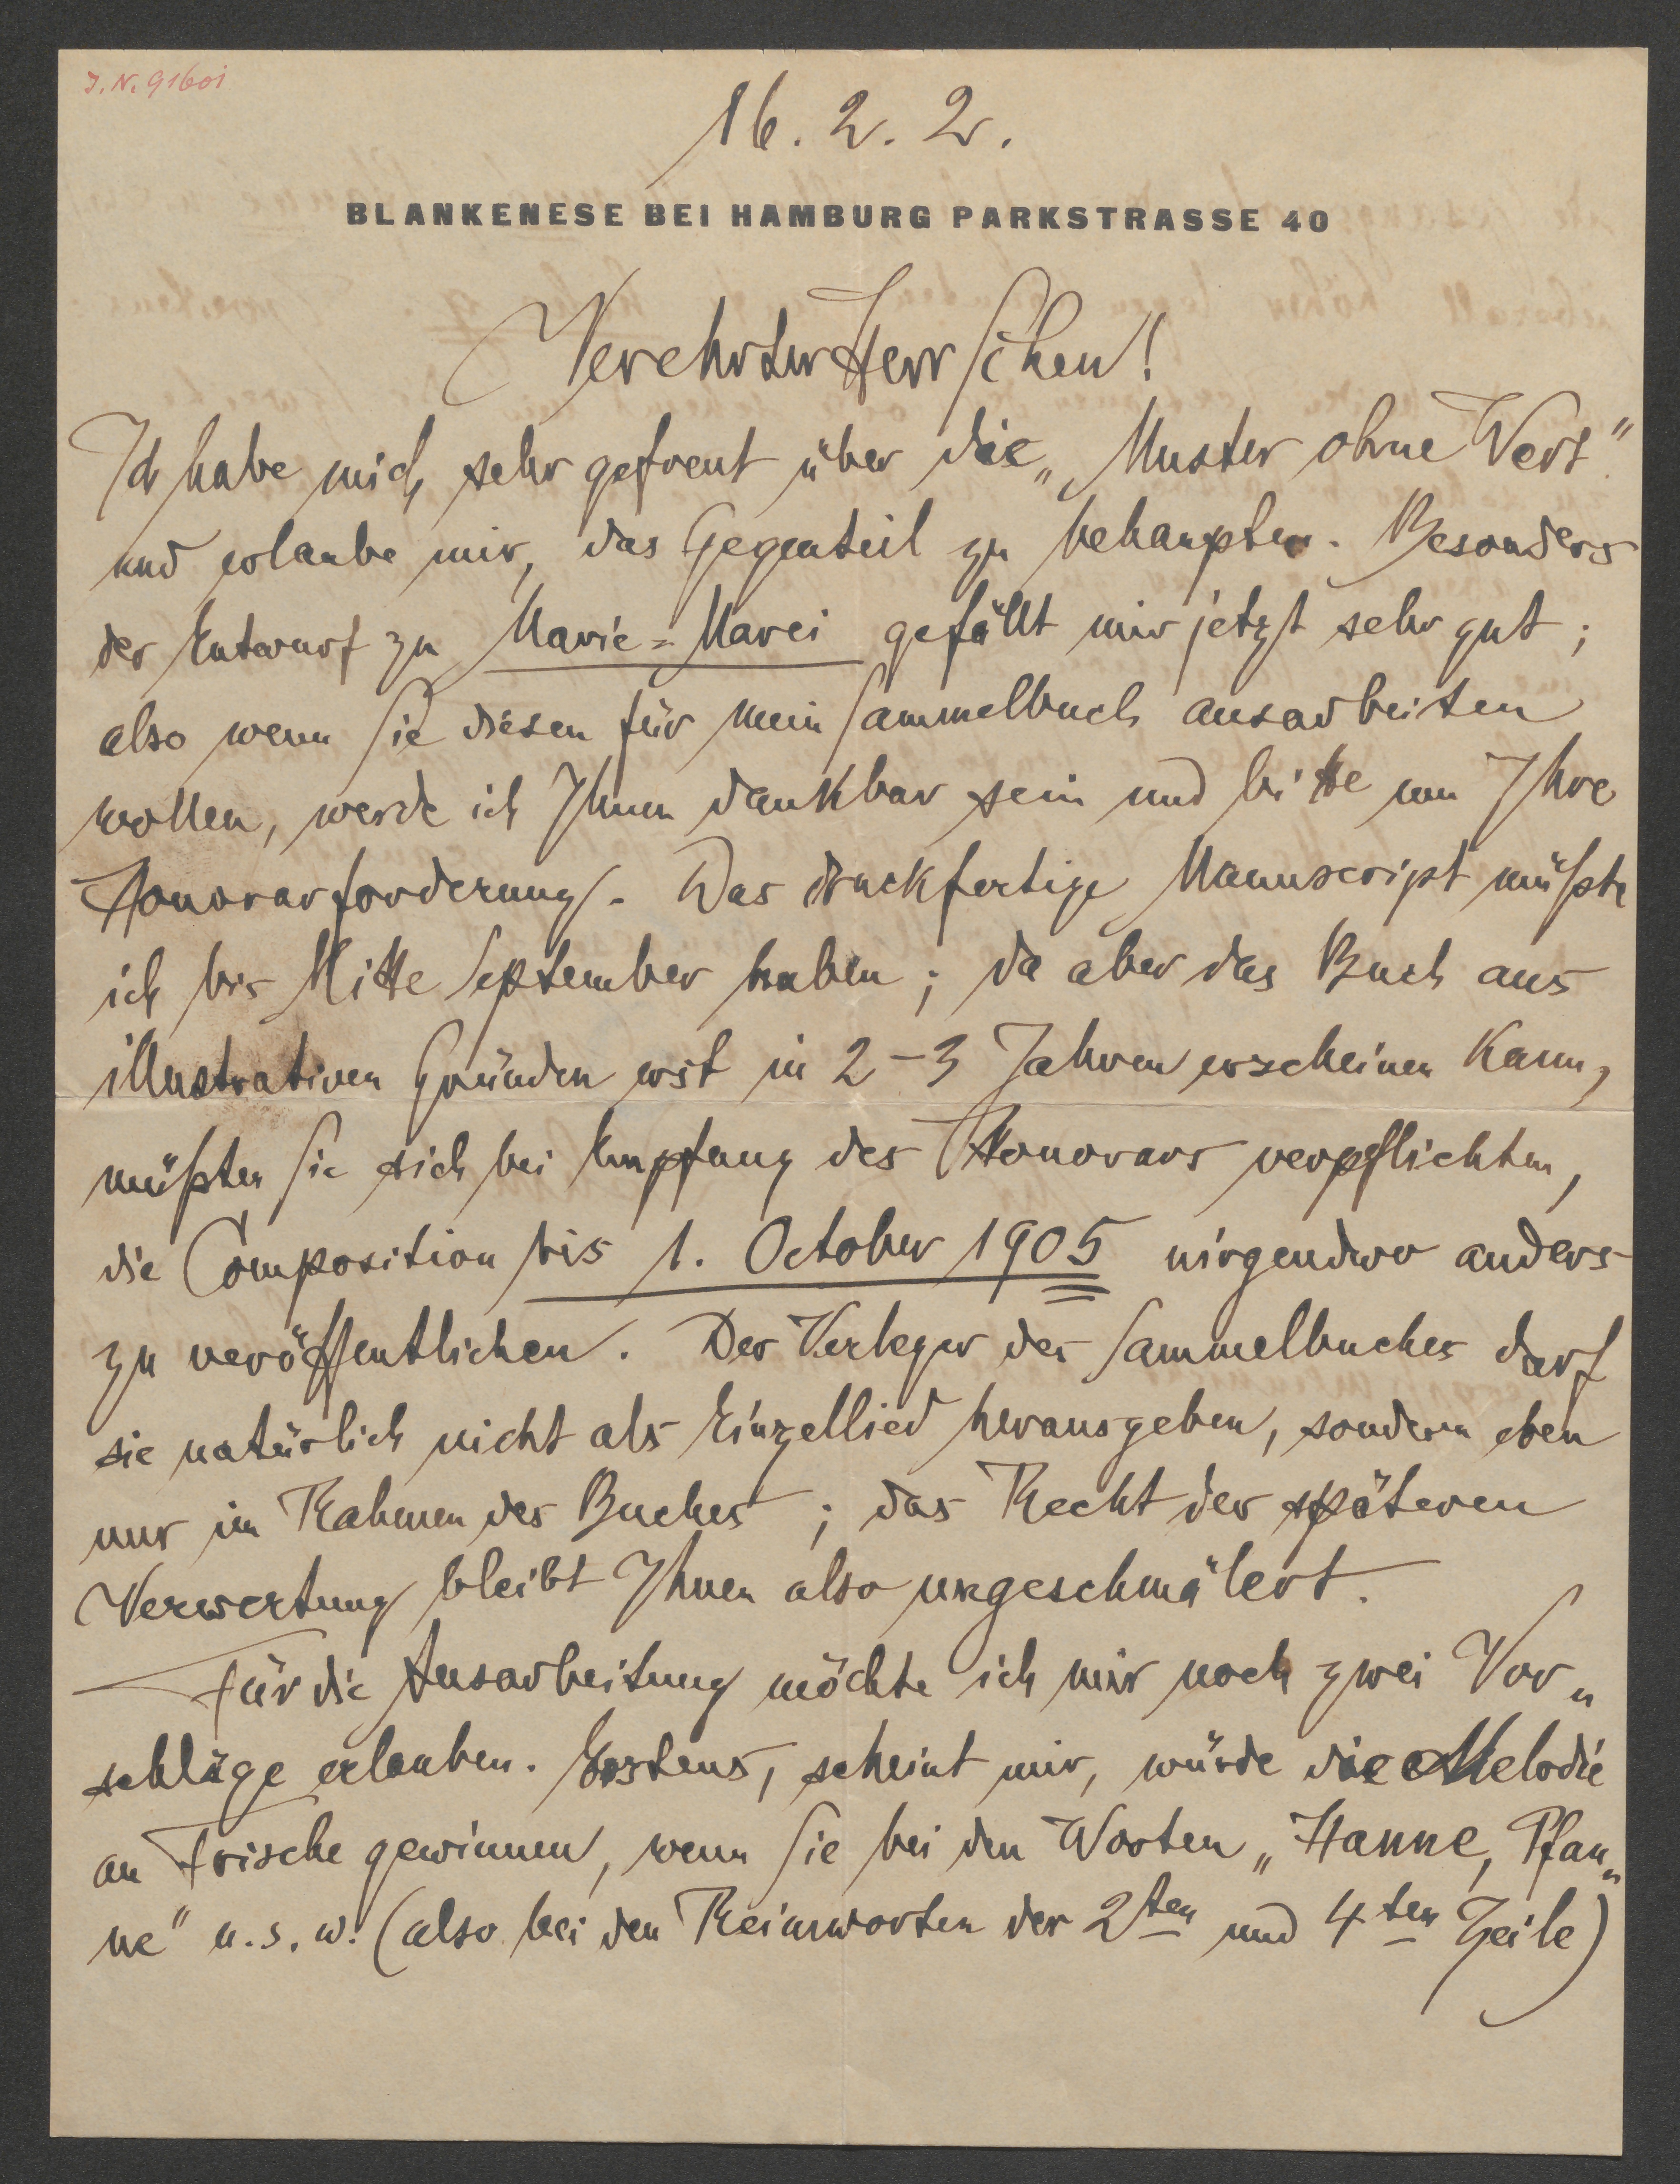 J. N. 91601
16. 2. 2.
BLANKENESE BEI HAMBURG PARKSTRASSE 40
Verehrter Herr Scheu!
Ich habe mich sehr gefreut über die „Muster ohne Wert"
und erlaube mir, das Gegenteil zu behaupten. Besonders
der Entwurf zu Marie=Marei gefällt mir jetzt sehr gut;
also wenn Sie diesen für mein Sammelbuch ausarbeiten
wollen, werde ich Ihnen dankbar sein und bitte um Ihre
Honorarforderung. Das druckfertige Manuscript müßte
ich bis Mitte September haben; da aber das Buch aus
illustrativen Gründen erst in 2–3 Jahren erscheinen kann,
müßten Sie sich bei Empfang des Honorars verpflichten,
die Composition bis 1. October 1905 nirgendwo anders
zu veröffentlichen. Der Verleger des Sammelbuches darf
sie natürlich nicht als Einzellied herausgeben, sondern eben
nur im Rahmen des Buches; das Recht der späteren
Verwertung bleibt Ihnen also ungeschmälert.
Für die Ausarbeitung möchte ich mir noch zwei Vor„
schläge erlauben. Erstens, scheint mir, würde die Melodie
an Frische gewinnen, wenn Sie bei den Worten „Hanne, Pfan„
ne" u. s. w. (also bei den Reimworten der 2ten und 4ten Zeile)